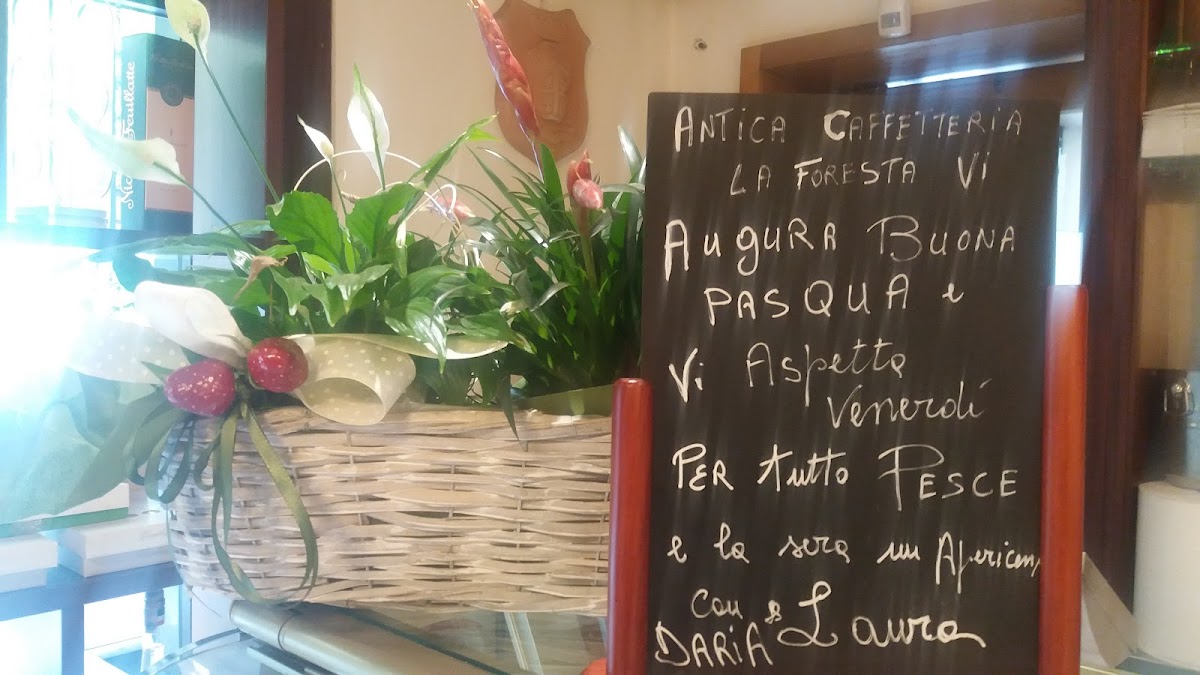 Nicolas Feuillatte
ANTICA CAFFETTERIA
LA FORESTA Vi
AUGURA BUONA
PASQUA e
Vi Aspetta
Venerdí
PER tutto PESCE
e la sera un Apericena
con
DARIA & Laura